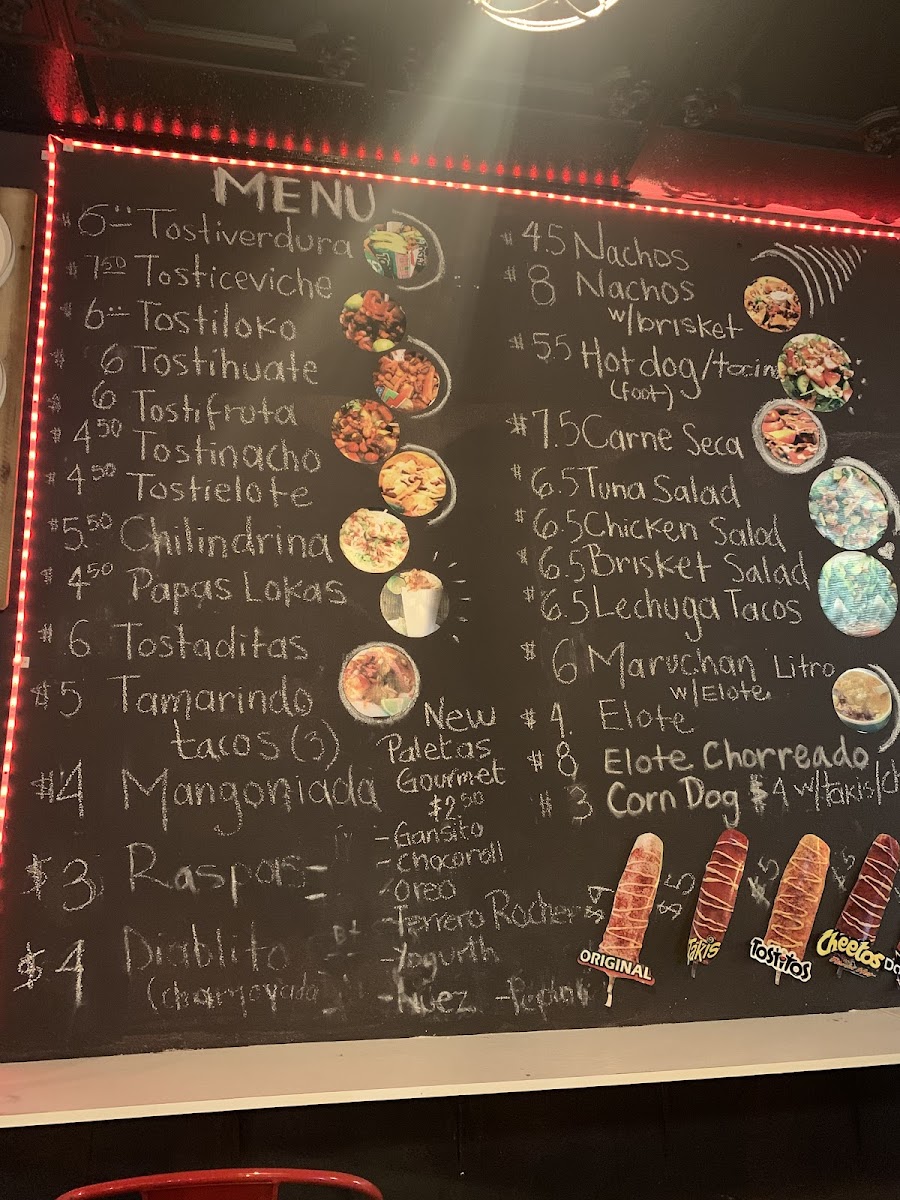 MENU
$6.00 Tostiverdura
$7.50 Tosticeviche
$6.00 Tostiloko
$6 Tostihuate
$6 Tostifruta
$4.50 Tostinacho
$4.50 Tostielote
$5.50 Chilindrina
$4.50 Papas Lokas
$6 Tostaditas
$5 Tamarindo
tacos (3)
$4 Mangoniada
$3 Raspas
$4 Diablito
(chamoyada)
New
Paletas
Gourmet
$2.50
-Gansito
-Chocoroll
-Oreo
-Ferrero Rocher
-Yogurth
-Nuez
$4.5 Nachos
$8 Nachos
w/brisket
$5.5 Hotdog/tocin
(foot)
$7.5 Carne Seca
$6.5 Tuna Salad
$6.5 Chicken Salad
$6.5 Brisket Salad
$6.5 Lechuga Tacos
$6 Maruchan Litro
w/Elote
$4. Elote
$8 Elote Chorreado
$3 Corn Dog $4 w/takis/ch
$4 $5 $5 $5
ORIGINAL
Takis
Tostitos
Cheetos